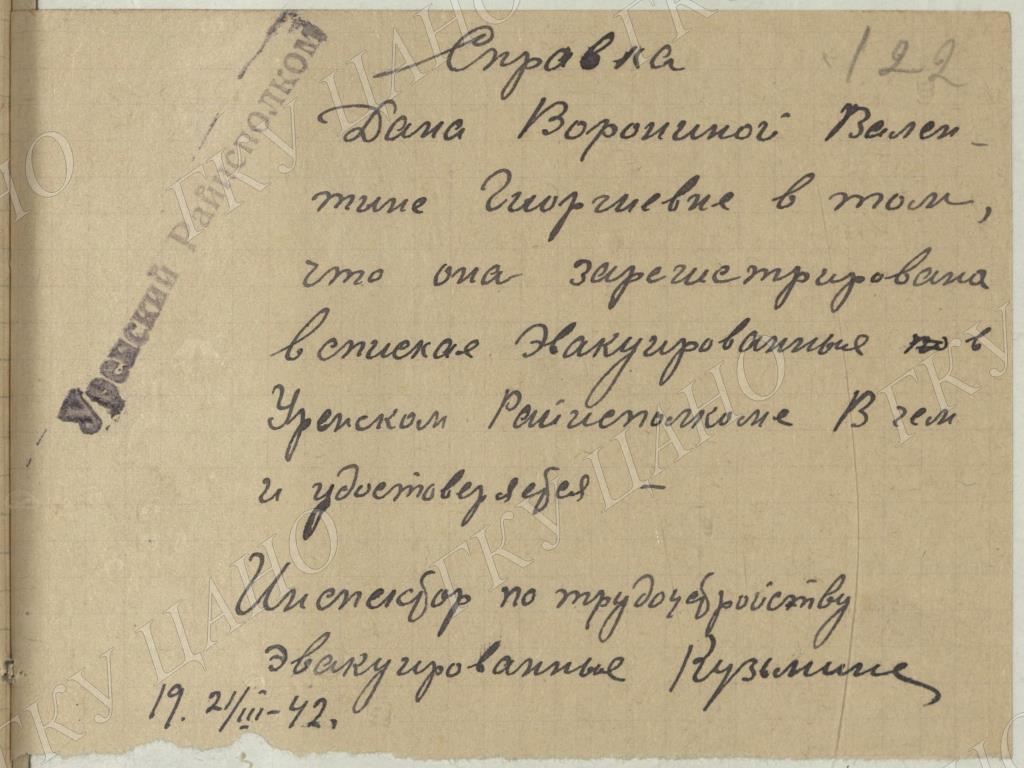 Справка
122
Дана Ворониной Вален-
тине Гиоргиевне в том,
что она зарегистрирована
в списках Эвакуированных в
Уренском Райисполкоме В чем
и удостоверяется –
Инспектор по трудоустройству
Эвакуированных
19. 21/III-42.
Уренский Райисполком
ГКУ ЦАНО